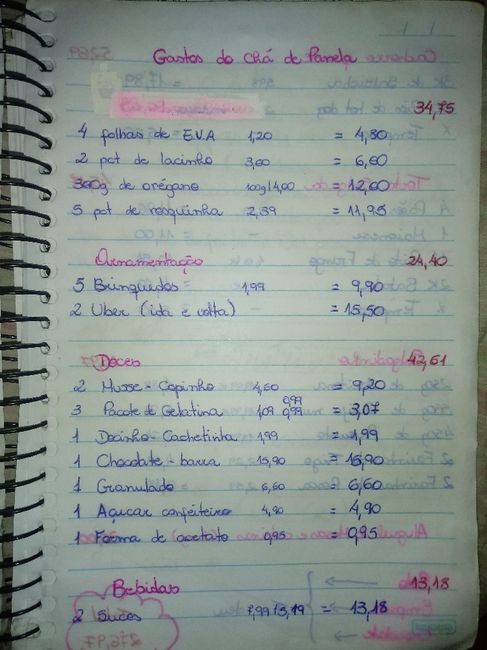 Gastos do Chá de Panela
34,75
4 folhas de E.V.A 1,20 = 4,80
2 pct de lacinho 3,60 = 6,60
300g de orégano 100g/4,00 = 12,00
5 pct de rosquinha 2,39 = 11,95
Ornamentação 24,40
5 Brinquedos 1,99 = 9,90
2 Uber (ida e volta) = 15,50
Doces 42,61
2 Musse - Copinho 4,60 = 9,20
0,99
3 Pacote de Gelatina 1,09 0,99 = 3,07
1 Docinho - Cachetinta 1,99 = 1,99
1 Chocolate - barra 15,90 = 15,90
1 Granulado 6,60 = 6,60
1 Açucar confeiteiro 4,90 = 4,90
1 Forma de acetato 0,95 = 0,95
Bebidas 13,18
2 Sucos 7,99/5,19 = 13,18